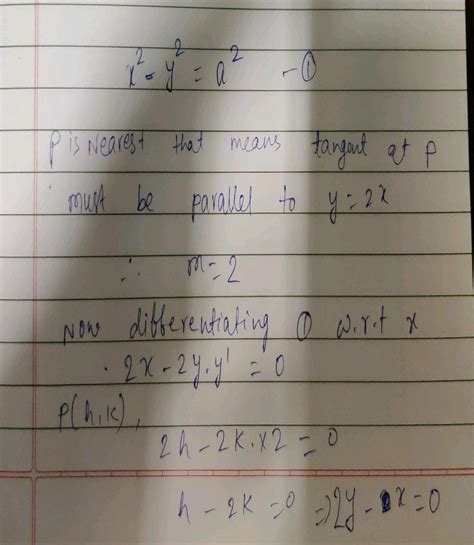 x² - y² = a² - ①
P is Nearest that means tangent at P
must be parallel to y = 2x
∴ m = 2
Now differentiating ① w.r.t x
. 2x - 2y.y' = 0
P(h,k),
2h - 2k.x2 = 0
h - 2k = 0 ⇒ 2y - x = 0